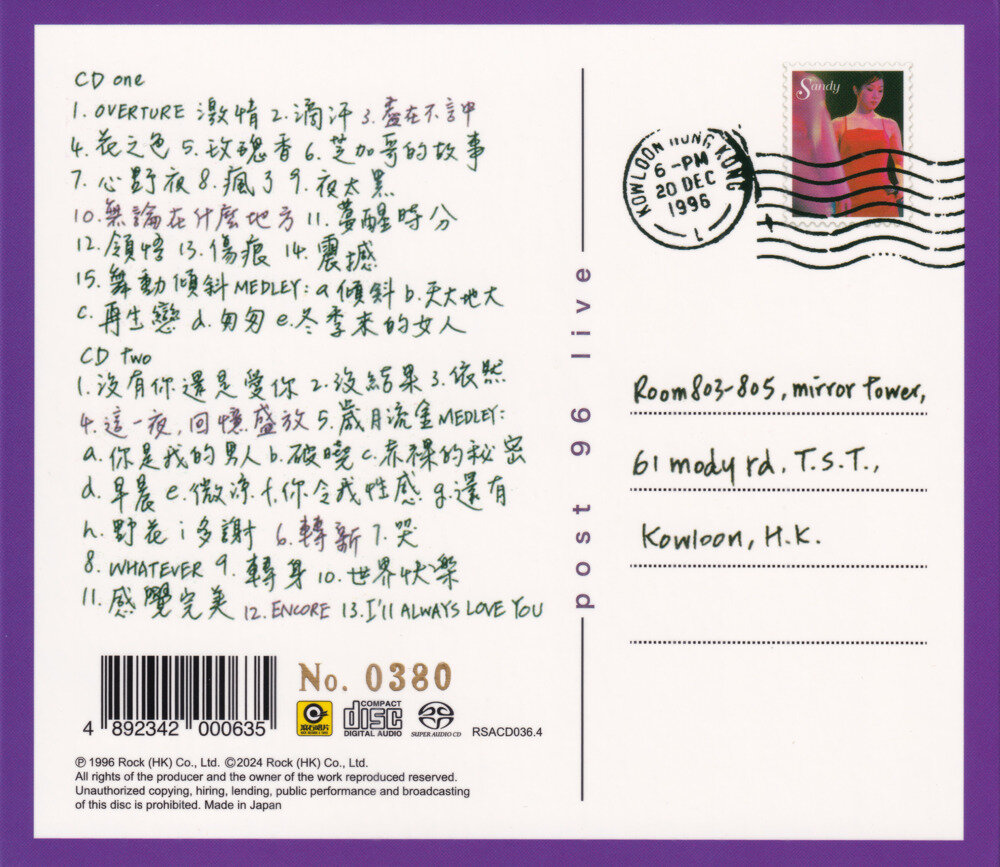 CD one
1. OVERTURE 激情 2. 滴汗 3. 盡在不言中
4. 花之色 5. 玫瑰香 6. 芝加哥的故事
7. 心野夜 8. 瘋了 9. 夜太黑
10. 無論在什麼地方 11. 夢醒時分
12. 領悟 13. 傷痕 14. 震撼
15. 舞動傾斜 MEDLEY: a 傾斜 b. 天大地大
c. 再生戀 d. 匆匆 e. 冬季來的女人
CD two
1. 沒有你還是愛你 2. 沒結果 3. 依然
4. 這一夜, 回憶盛放 5. 歲月流金 MEDLEY:
a. 你是我的男人 b. 破曉 c. 赤裸的秘密
d. 早晨 e. 微涼 f. 你令我性感 g. 還有
h. 野花 i 多謝 6. 轉新 7. 哭
8. WHATEVER 9. 轉身 10. 世界快樂
11. 感覺完美 12. ENCORE 13. I'll ALWAYS LOVE YOU
Sandy
KOWLOON HONG KONG
6-PM
20 DEC
1996
1
post 96 live
Room 803-805, mirror Tower,
61 mody rd. T.S.T.,
Kowloon, H.K.
No. 0380
4 892342 000635
滾石唱片
COMPACT
disc
DIGITAL AUDIO
SUPER AUDIO CD
RSACD036.4
℗ 1996 Rock (HK) Co., Ltd. ©2024 Rock (HK) Co., Ltd.
All rights of the producer and the owner of the work reproduced reserved.
Unauthorized copying, hiring, lending, public performance and broadcasting
of this disc is prohibited. Made in Japan